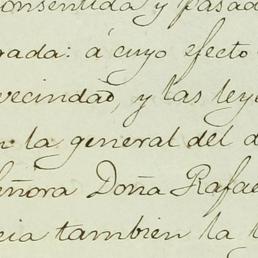 consentida y pasad
gada: á cuyo efecto
vecindad, y las ley
n la general del d
eñora Doña Rafae
cia tambien la l